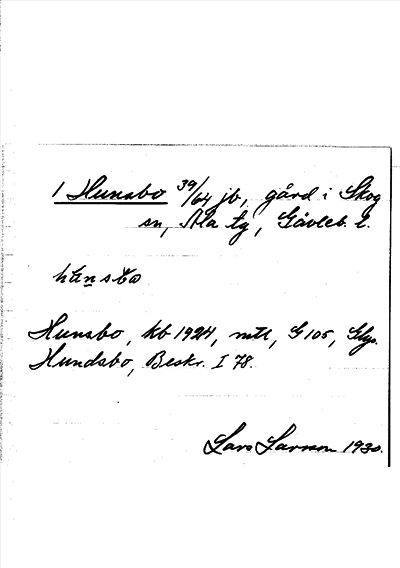 1 Hunsbo 39/64 jb, gård i Skog
sn, Ala tg, Gävleb. l.
Hunsbo, kb 1924, mtl, G 105, Ehp.
Hundsbo, Beskr. I 78.
Lars Larsson 1930.